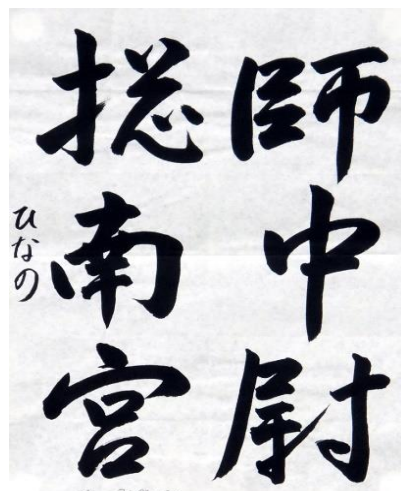 師中尉
揔南宮
ひなの